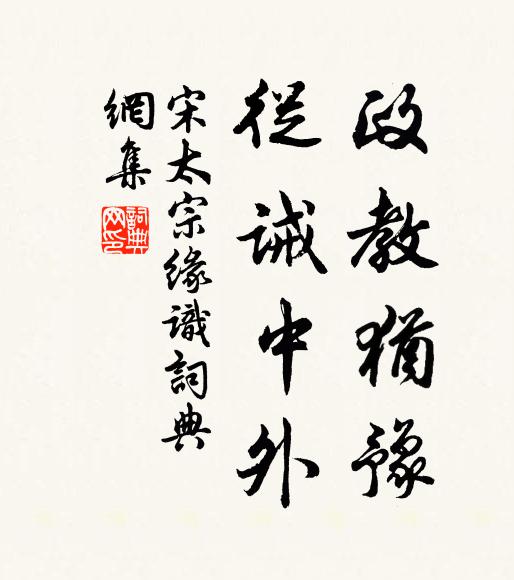 政教猶豫
從誡中外
宋太宗緣識詞典
網集
詞典網印